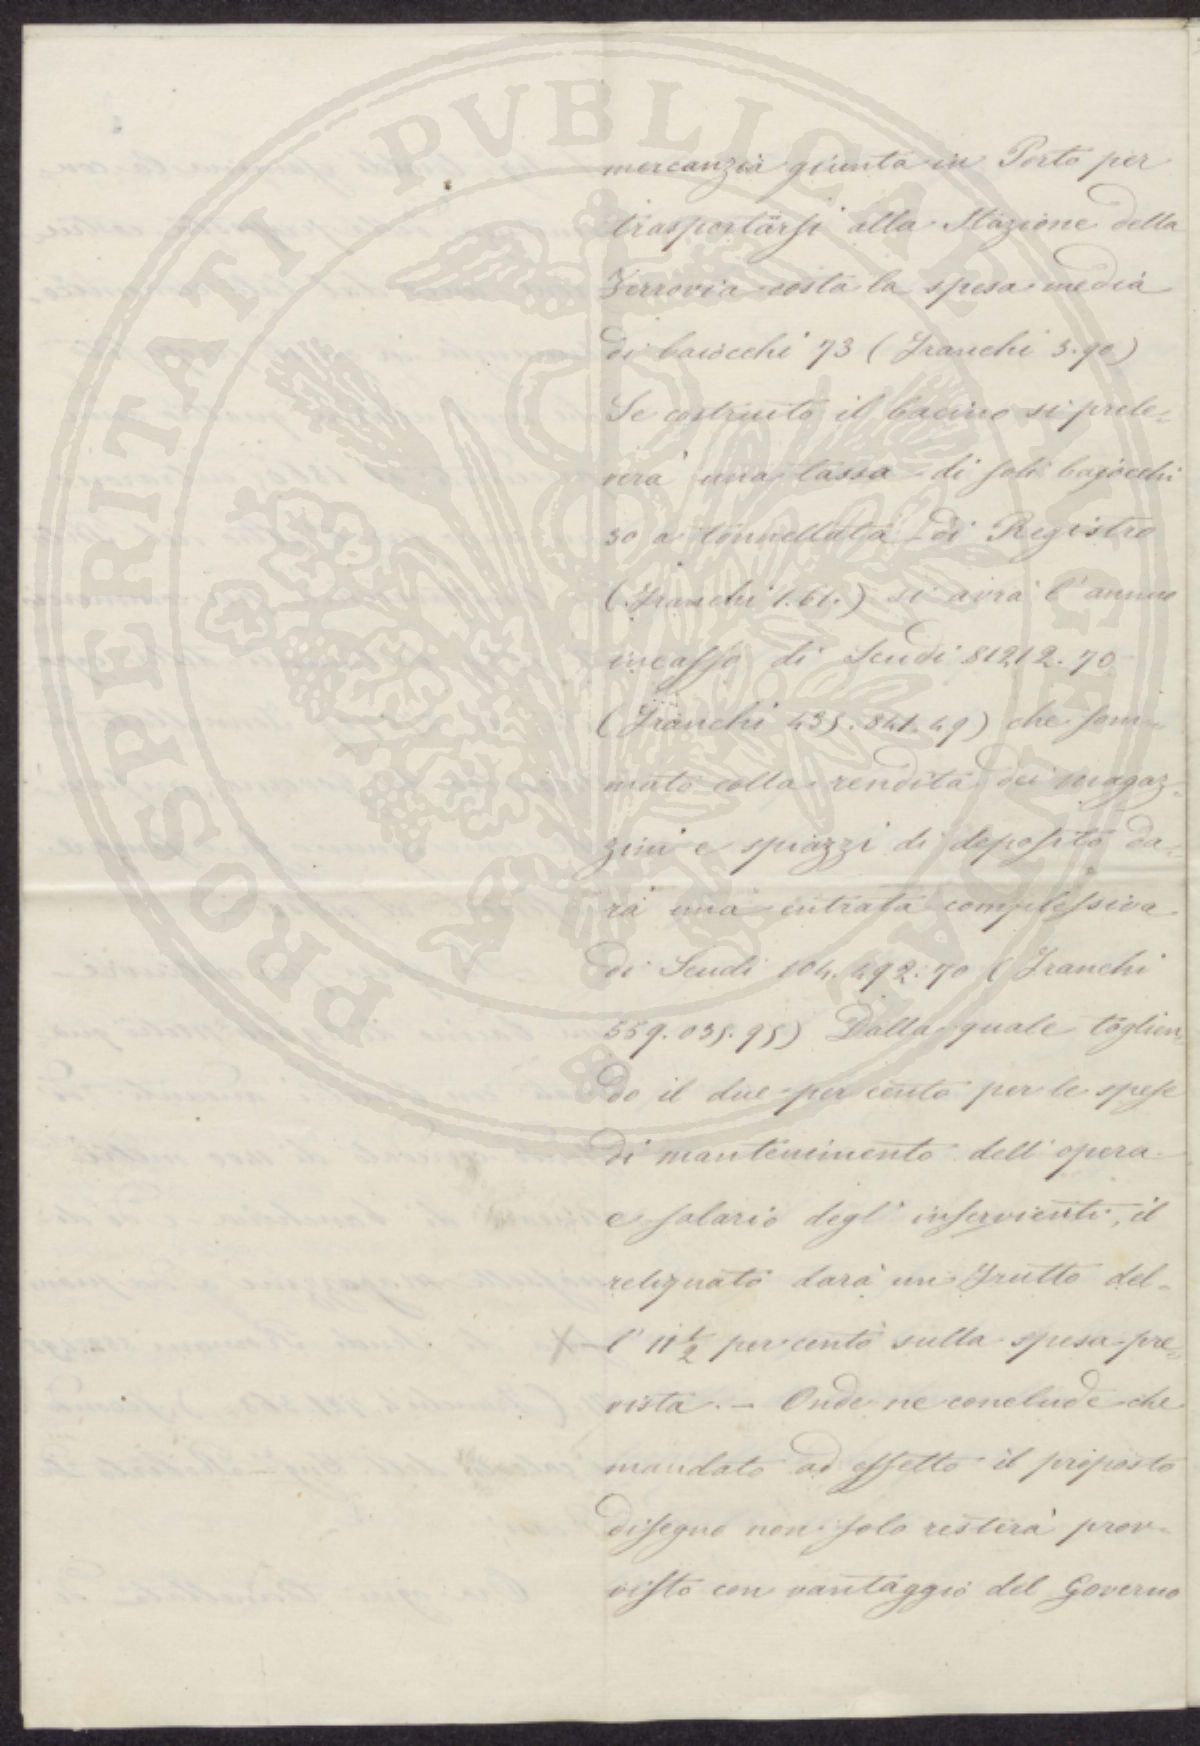 PROSPERITATI PVBLICAE AVGENDAE
mercanzia giunta in Porto per
trasportarsi alla Stazione della
Ferrovia costa la spesa media
di baiocchi 73 (Franchi 3.90)
Se costruito il bacino si prele=
verà una tassa di soli bajocchi
30 a tonnellata di Registro
(Franchi 1.61.) si avrà l'annuo
incasso di Scudi 81212.70
(Franchi 435.841.49) che som=
mato colla rendita dei magaz=
zini e spiazzi di deposito da=
rà una entrata complessiva
di Scudi 104.492.70 (Franchi
559.035.95) Dalla quale toglien
do il due per cento per le spese
di mantenimento dell'opera
e salario degl'inservienti, il
reliquato darà un frutto del=
l'11 1/2 per cento sulla spesa pre=
vista. – Onde ne conclude che
mandato ad effetto il proposto
disegno non solo resterà prov=
visto con vantaggio del Governo